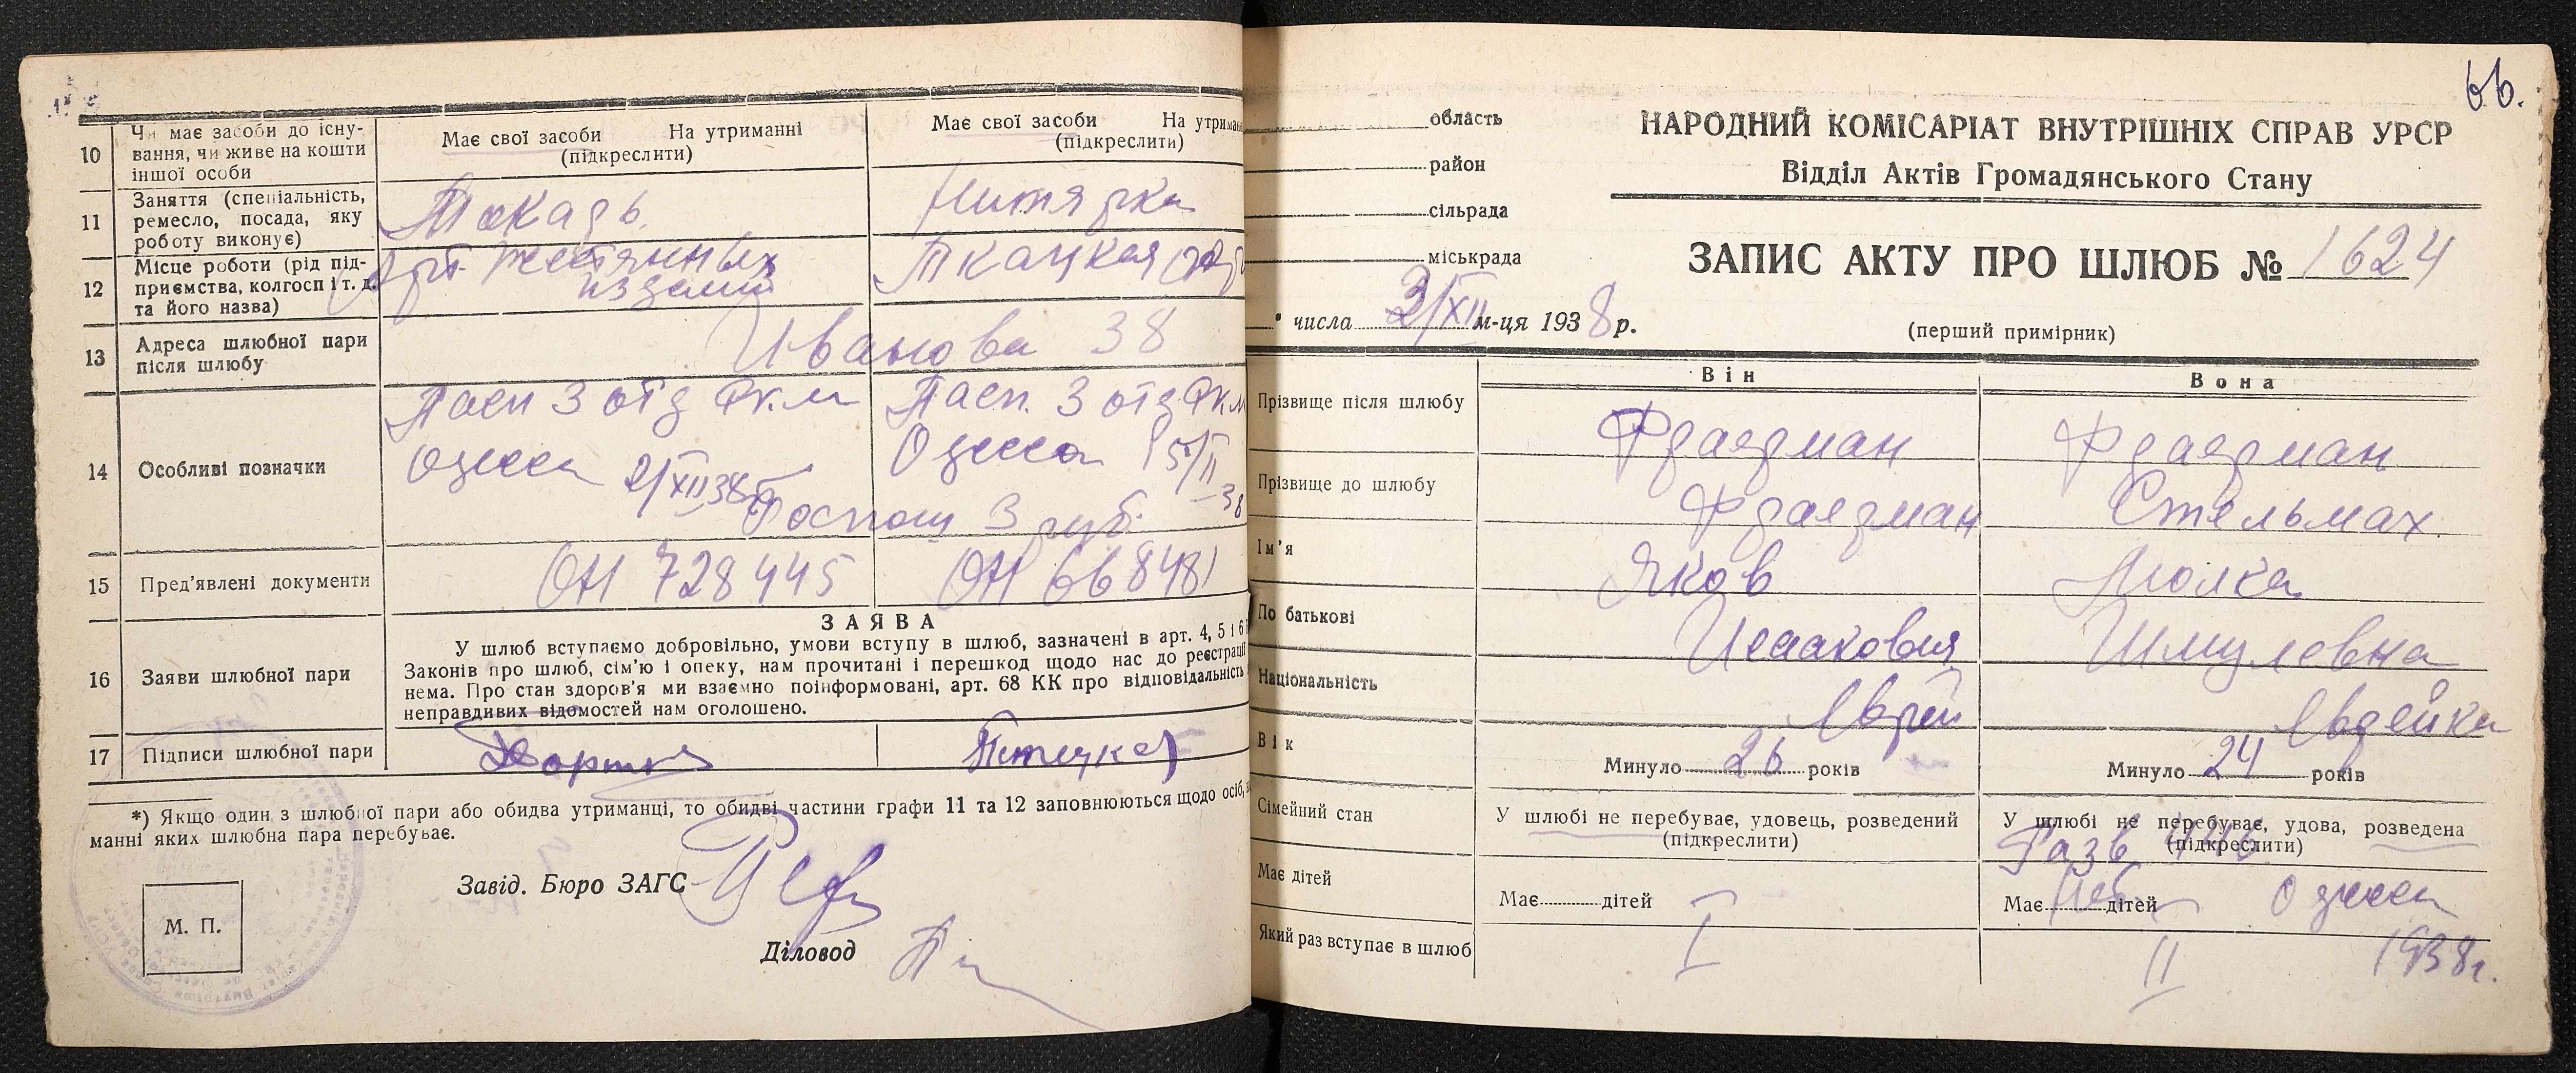 10
Чи має засоби до існу-
вання, чи живе на кошти
іншої особи
Має свої засоби На утриманні
(підкреслити)
Має свої засоби На утриман
(підкреслити)
11
Заняття (спеціальність,
ремесло, посада, яку
роботу виконує)
Токарь.
12
Місце роботи (рід під-
приємства, колгосп і т. д.
та його назва)
Арт. жестянных
изделий
Ткацкая
13
Адреса шлюбної пари
після шлюбу
Иванова 38
14
Особливі позначки
Пасп 3 отд Рк.м
Одесса 2/XII 38
Пасп. 3 отд Рк.м
Одесса 5/II
38
Госпош 3 руб.
15
Пред'явлені документи
ОН 728445
ОН 668481
16
Заяви шлюбної пари
ЗАЯВА
У шлюб вступаємо добровільно, умови вступу в шлюб, зазначені в арт. 4, 5 і 6
Законів про шлюб, сім'ю і опеку, нам прочитані і перешкод щодо нас до реєстрації
нема. Про стан здоров'я ми взаємно поінформовані, арт. 68 КК про відповідальність
неправдивих відомостей нам оголошено.
17
Підписи шлюбної пари
*) Якщо один з шлюбної пари або обидва утриманці, то обидві частини графи 11 та 12 заповнюються щодо осіб,
манні яких шлюбна пара перебуває.
Завід. Бюро ЗАГС
М. П.
Діловод
66.
область
район
сільрада
міськрада
НАРОДНИЙ КОМІСАРІАТ ВНУТРІШНІХ СПРАВ УРСР
Відділ Актів Громадянського Стану
ЗАПИС АКТУ ПРО ШЛЮБ № 1624
(перший примірник)
числа 3/XII м-ця 1938 р.
Він
Вона
Прізвище після шлюбу
Фраерман
Фраерман
Прізвище до шлюбу
Фраерман
Стельмах.
Ім'я
Яков
По батькові
Исаакович
Шмулевна
Національність
Еврей
Еврейка
Вік
Минуло 26 років
Минуло 24 років
Сімейний стан
У шлюбі не перебуває, удовець, розведений
(підкреслити)
У шлюбі не перебуває, удова, розведена
(підкреслити)
Разв
Має дітей
Має дітей
Має дітей
Одесса
Який раз вступає в шлюб
I
II
1938г.